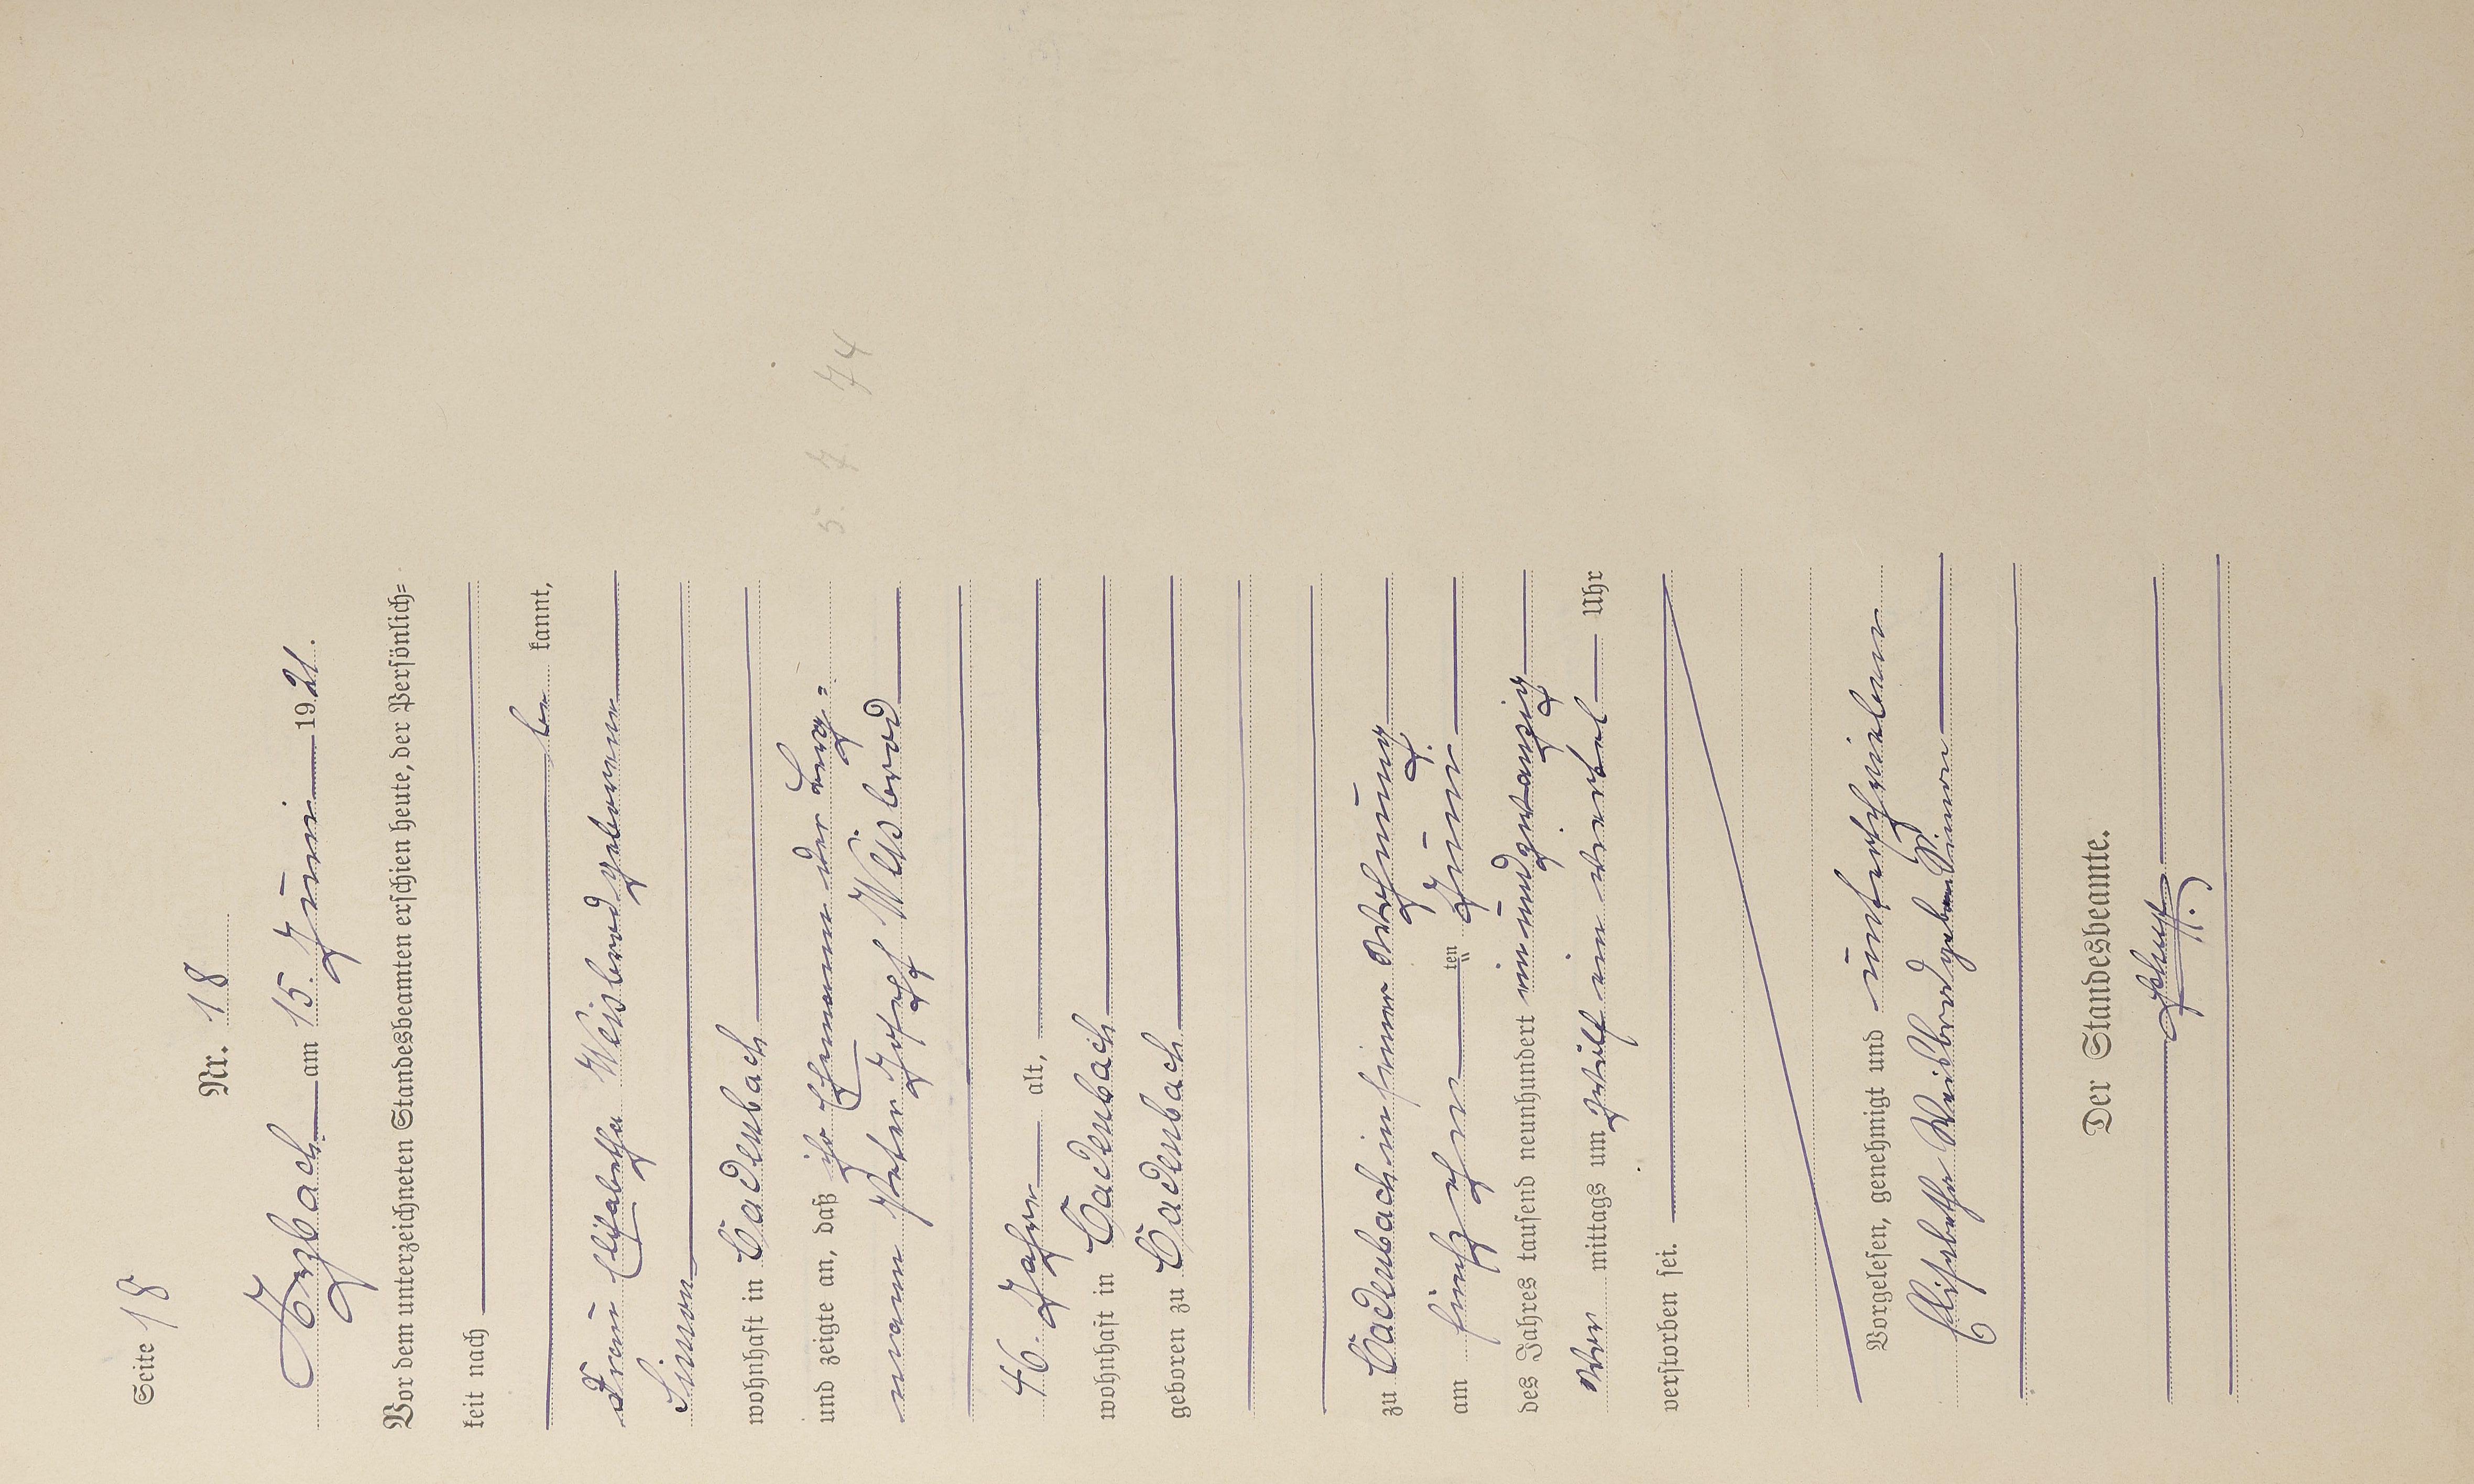 Seite 18
Nr. 18
Arzbach am 15. Juni 1921.
Vor dem unterzeichneten Standesbeamten erschien heute, der Persönlich=
keit nach
be kannt,
Frau Elisabetha Weisbrod geborene
Simon
wohnhaft in Cadenbach
und zeigte an, daß ihr Ehemann der Berg=
mann Peter Josef Weisbrod
5. 7. 74
46. Jahre alt,
wohnhaft in Cadenbach
geboren zu Cadenbach
zu Cadenbach in seiner Wohnung
am fünfzehn ten Juni
des Jahres tausend neunhundert einundzwanzig
Vor mittags um zwölf ein viertel Uhr
verstorben sei.
Vorgelesen, genehmigt und unterschrieben
Elisabetha Weisbrod geboren Simon
Der Standesbeamte.